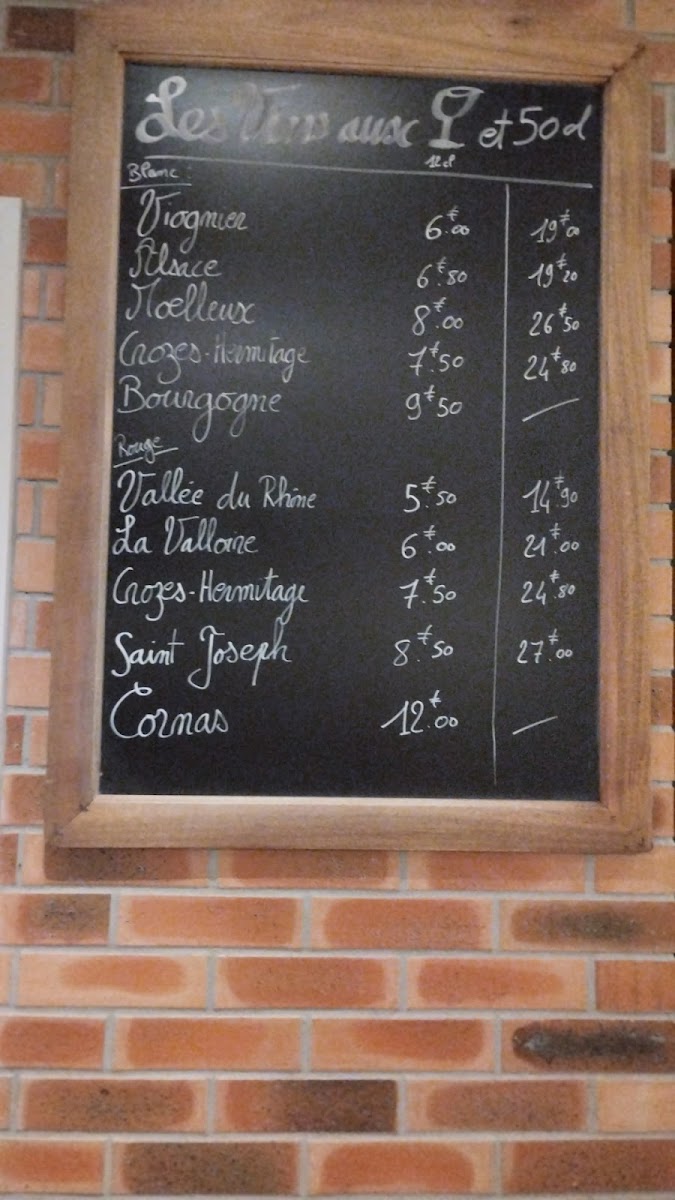 Les Vins aux et 50cl
12cl
Blanc :
Viognier 6.€00 19€00
Alsace 6.€80 19€20
Moelleux 8.€00 26€50
Crozes-Hermitage 7.€50 24€80
Bourgogne 9€50 /
Rouge
Vallée du Rhône 5.€50 14.€90
La Valloire 6.€00 21.€00
Crozes-Hermitage 7.€50 24.€80
Saint Joseph 8.€50 27.€00
Cornas 12.€00 /